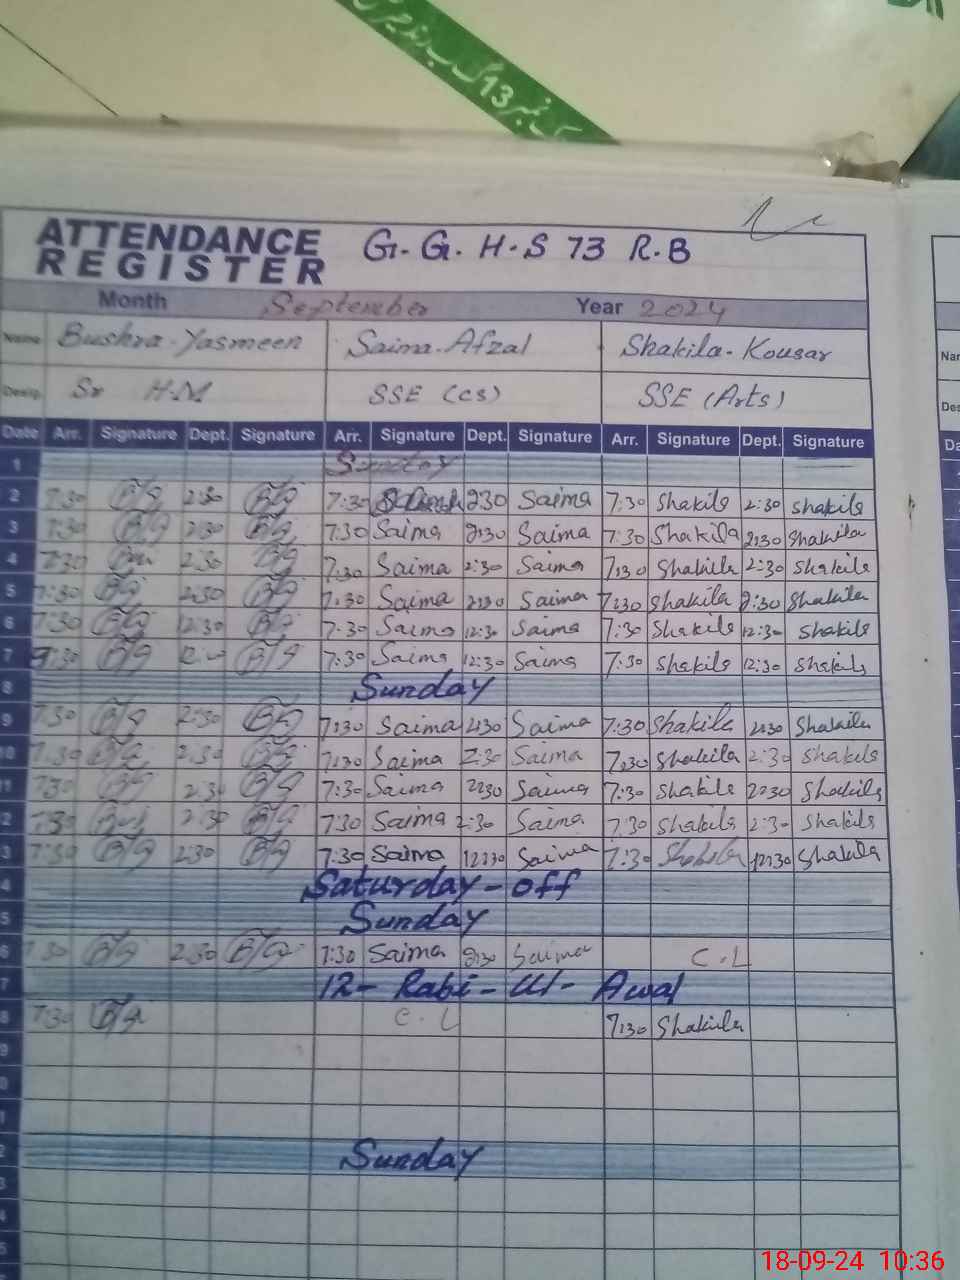 نمبر 13 گ ب
ATTENDANCE REGISTER G.G.H.S 73 R.B
Month September Year 2024
Name Bushra Yasmeen Saima Afzal Shakila Kousar
Desig. Sr H.M SSE (CS) SSE (Arts)
Date Arr. Signature Dept. Signature Arr. Signature Dept. Signature Arr. Signature Dept. Signature
1 Sunday
2 7:30 2:30 7:30 Saima 2:30 Saima 7:30 Shakila 2:30 Shakila
3 7:30 2:30 7:30 Saima 2:30 Saima 7:30 Shakila 2:30 Shakila
4 7:30 2:30 7:30 Saima 2:30 Saima 7:30 Shakila 2:30 Shakila
5 7:30 2:30 7:30 Saima 2:30 Saima 7:30 Shakila 2:30 Shakila
6 7:30 12:30 7:30 Saima 12:30 Saima 7:30 Shakila 12:30 Shakila
7 7:30 7:30 Saima 12:30 Saima 7:30 Shakila 12:30 Shakila
8 Sunday
9 7:30 2:30 7:30 Saima 2:30 Saima 7:30 Shakila 2:30 Shakila
10 7:30 2:30 7:30 Saima 2:30 Saima 7:30 Shakila 2:30 Shakila
11 7:30 2:30 7:30 Saima 2:30 Saima 7:30 Shakila 2:30 Shakila
2 7:30 2:30 7:30 Saima 2:30 Saima 7:30 Shakila 2:30 Shakila
3 7:30 2:30 7:30 Saima 12:30 Saima 7:30 Shakila 12:30 Shakila
4 Saturday - off
5 Sunday
6 7:30 2:30 7:30 Saima 2:30 Saima C.L
7 12 - Rabi - Ul - Awal
8 7:30 C.L 7:30 Shakila
9
0
1
2 Sunday
3
4
5
18-09-24 10:36